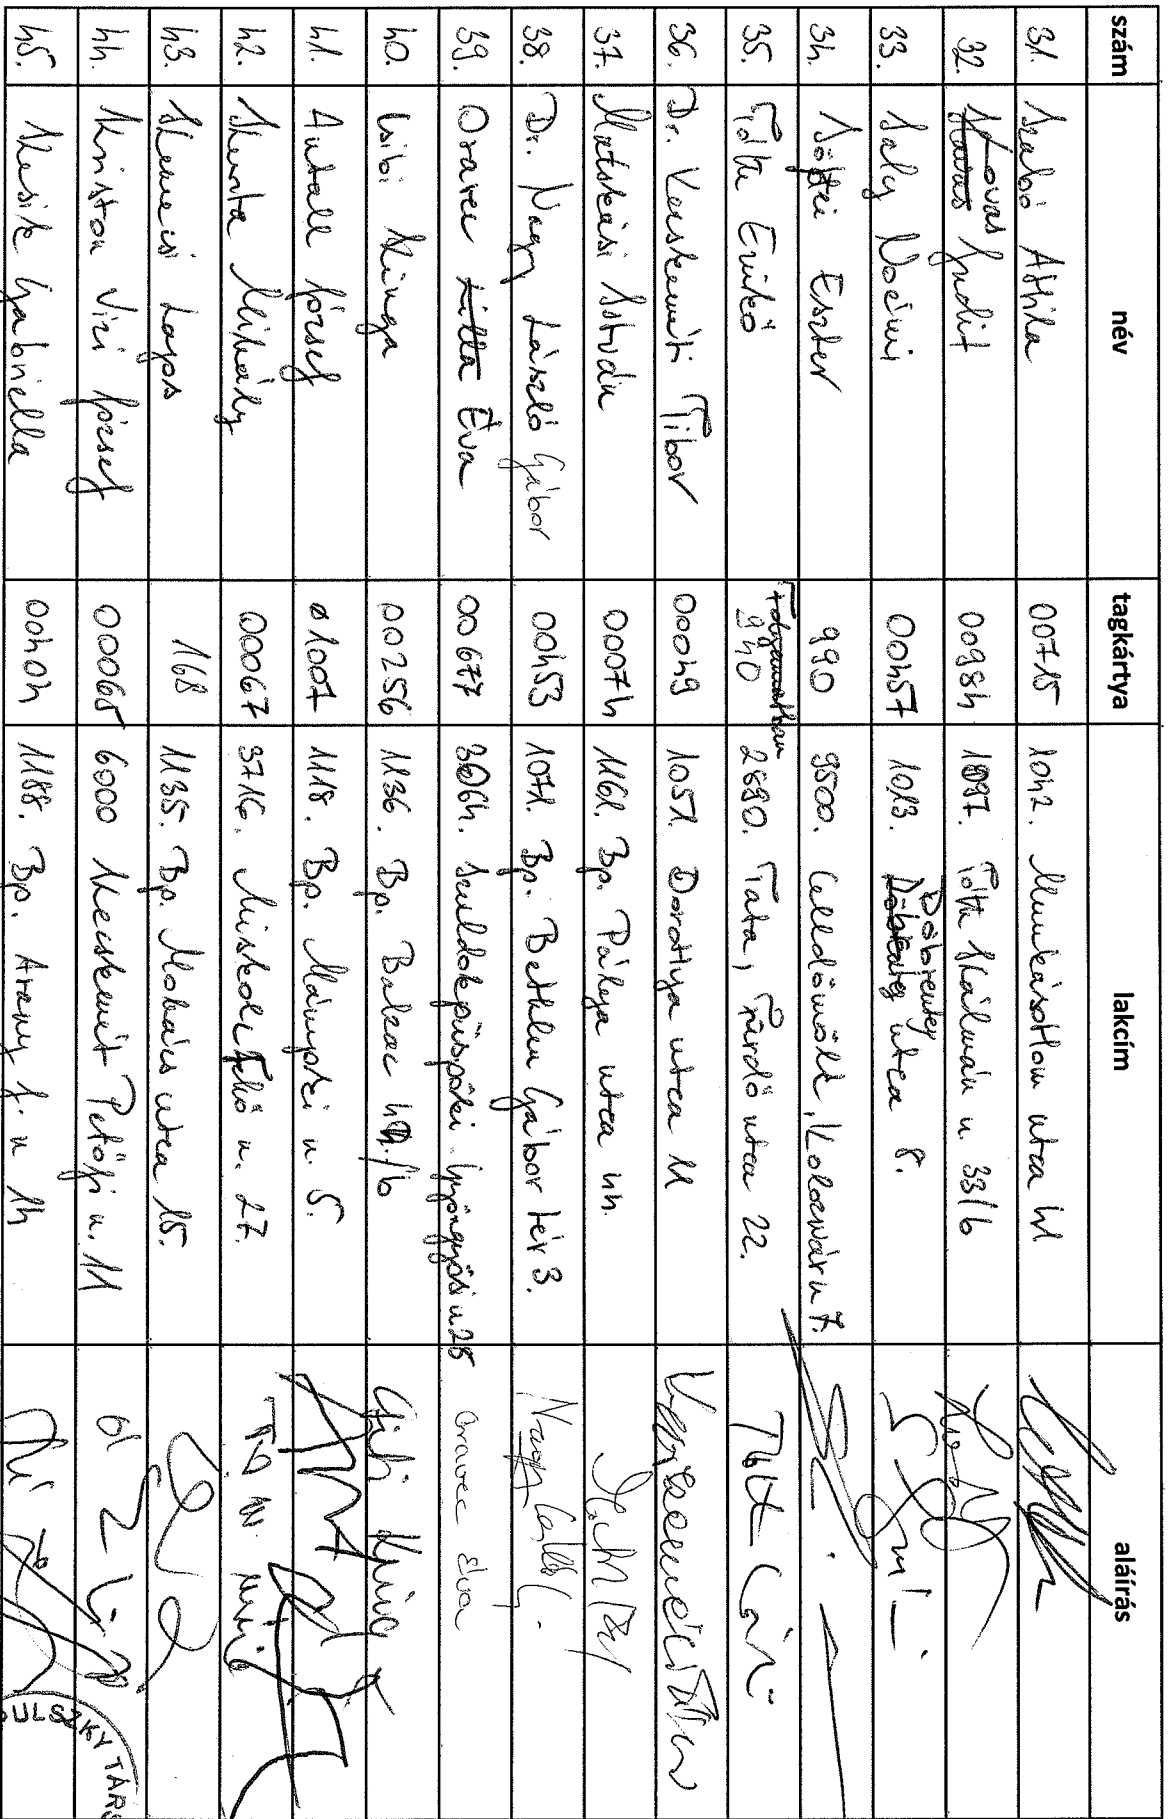 szám név tagkártya lakcím aláírás
31. Szabó Attila 00715 1042. Munkásotthon utca 41
32. Kovas Judit 00984 1097. Tóth Kálmán u. 33/b
33. Saly Noémi 00457 1013. Döbrentey utca 8.
34. Söptei Eszter 990 9500. Celldömölk, Kolozsvár u 7.
35. Tóth Enikő 940 2890. Tata, Fürdő utca 22. Tóth
36. Dr. Kecskeméti Tibor 00049 1051. Dorottya utca 11 Kecskeméti Tibor
37. Matskási István 00074 1161. Bp. Pálya utca 44.
38. Dr. Nagy László Gábor 00453 1071. Bp. Bethlen Gábor tér 3. Nagy László G.
39. Oravec Éva 00677 3064. Szurdokpüspöki Gyöngyösi u. 25 oravec éva
40. Csibi Kinga 00256 1136. Bp. Balzac Csibi Kinga
41. Antall József 01007 1118. Bp. Ményeki u. 5.
42. Mihály 00067 3716. Miskolc u. 27.
43. Kemecsi Lajos 168 1135. Bp. Mohács utca 15.
44. Kriston Vízi József 00065 6000 Kecskemét Petőfi u. 11
45. Kusik Gabriella 00404 1188. Bp. Arany J. u 14
PULSZKY TÁRS